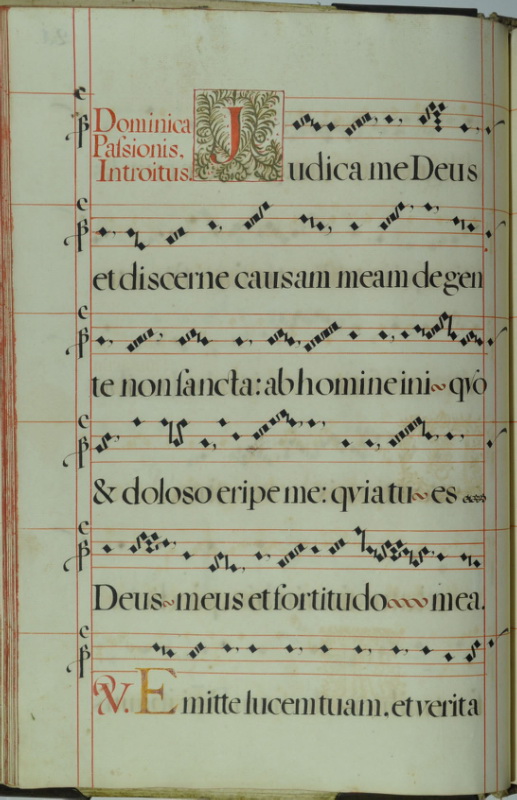 Dominica
Paſsionis.
Introitus.
Judica me Deus
et discerne causam meam de gen
te non ſancta: ab homine ini~ qvo
& doloso eripe me: qvia tu~ es
Deus~ meus et fortitudo~~~ mea.
V. Emitte lucem tuam. et verita